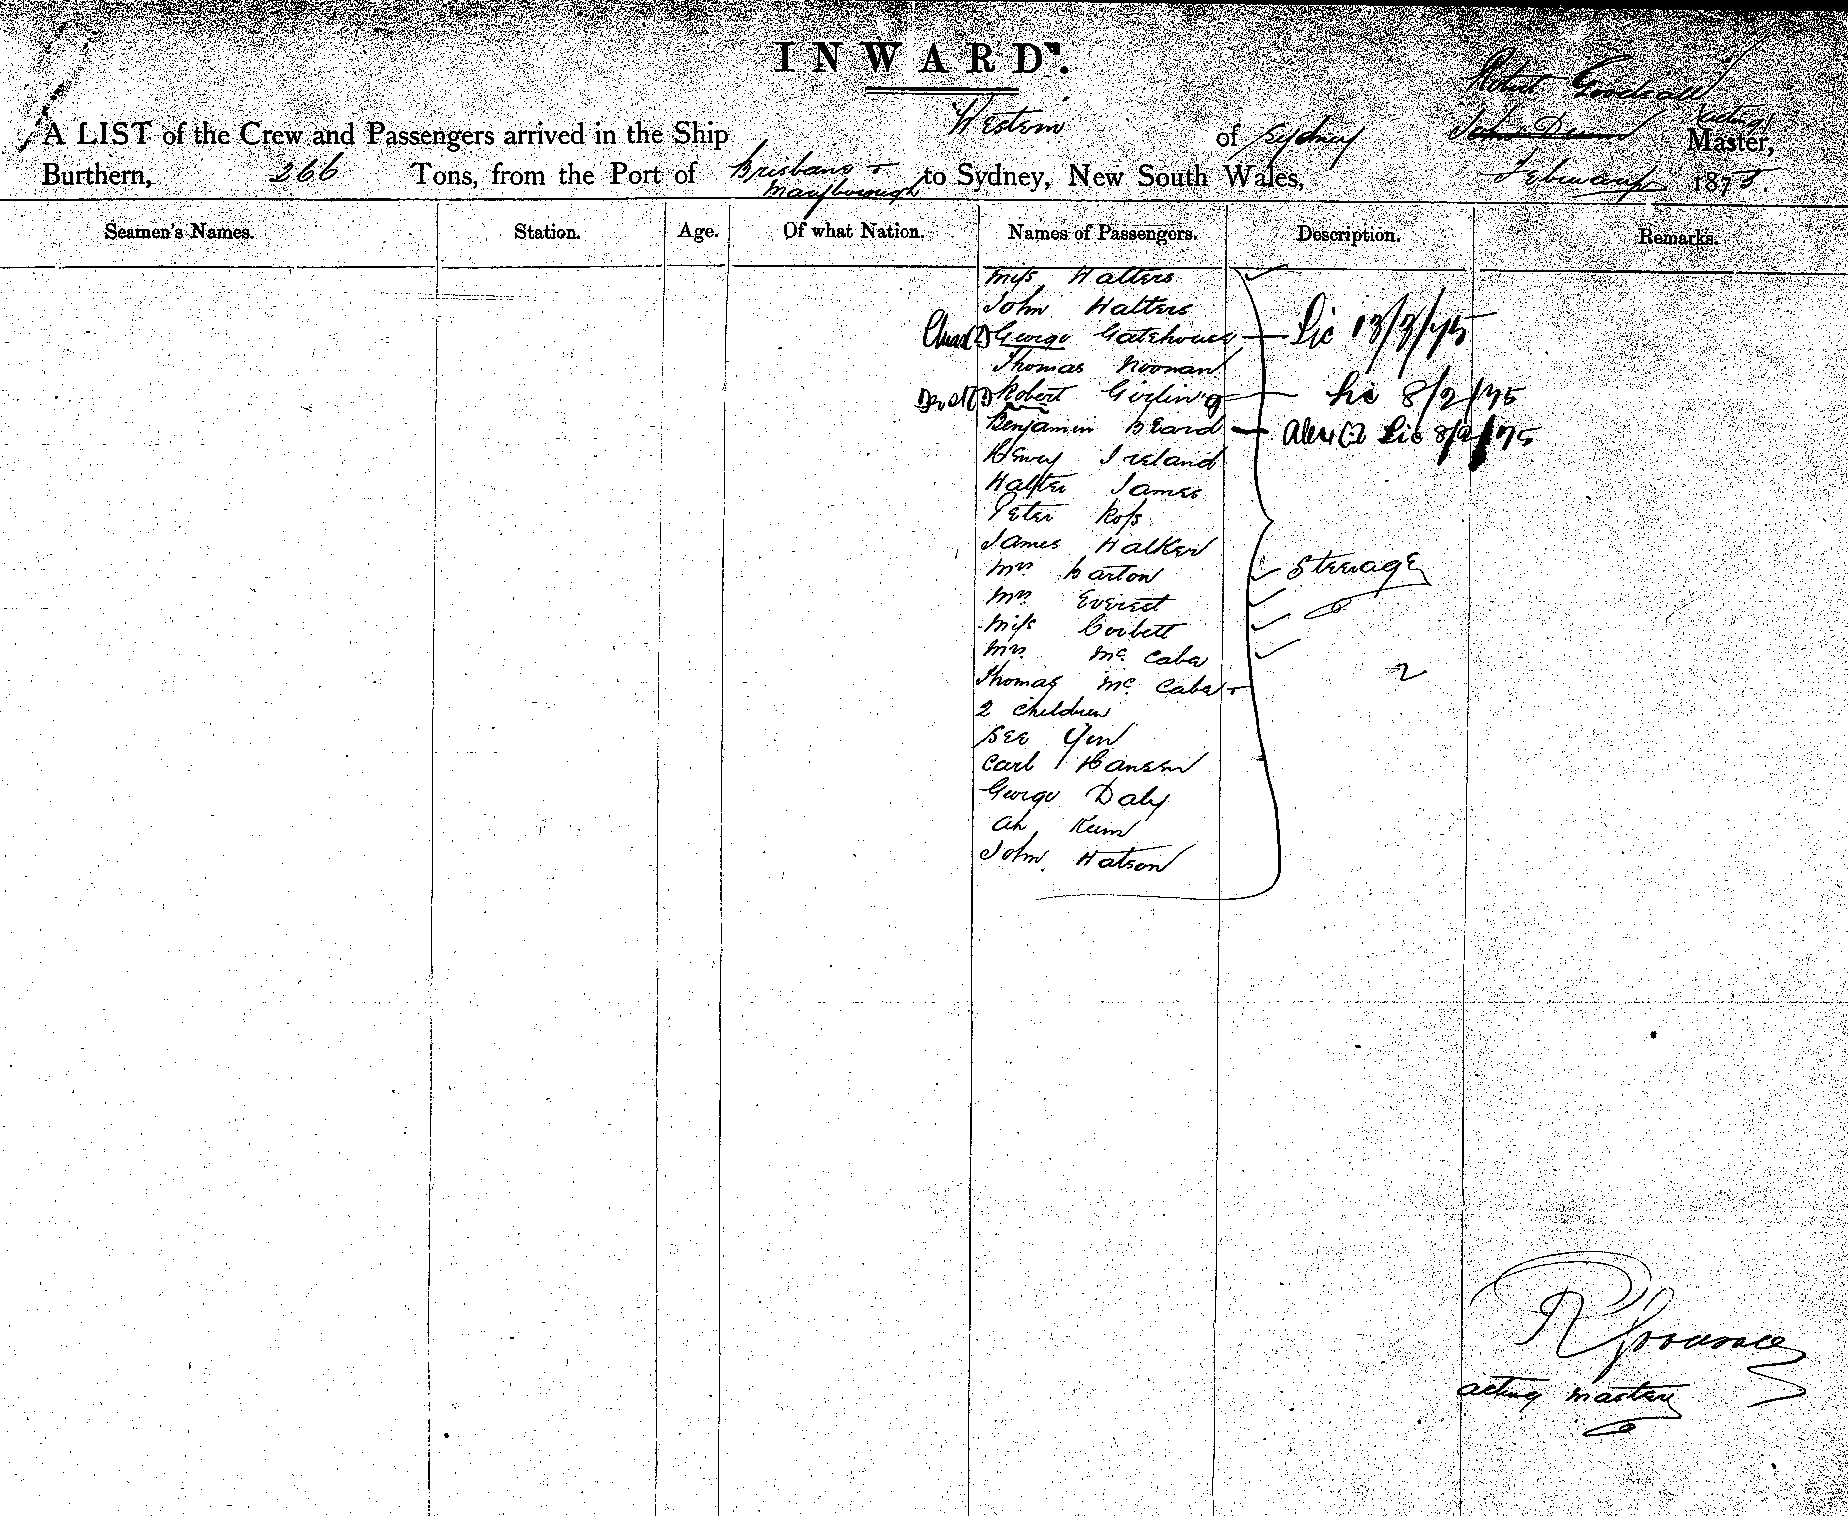 INWARD.
A LIST of the Crew and Passengers arrived in the Ship Western of Sydney Robert John Dunn Acting Master,
Burthern, 266 Tons, from the Port of Brisbane + Maryborough to Sydney, New South Wales, February 1875.
Seamen's Names. Station. Age. Of what Nation. Names of Passengers. Description. Remarks.
Miss Walters
John Walters
George Gatehouse Lic 13/3/75
Thomas Noonan
Robert Girling Lic 8/2/75
Benjamin Beard Lic 8/2/75
Henry Ireland
Walter James
Peter Ross
James Walker
Mrs Barton Steerage
Mrs Everest
Miss Corbett
Mrs McCabe
Thomas McCabe + 2
2 Children
See Yen
Carl Hansen
George Daly
Ah Keim
John Watson
acting master